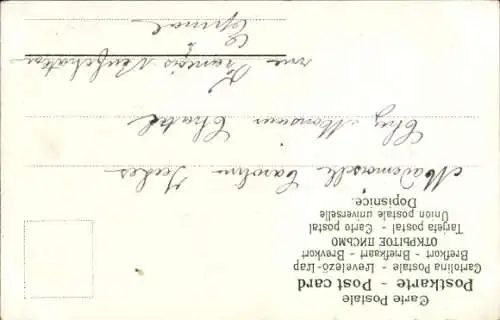 Carte Postale
Postkarte - Post card
Cartolina Postale - Levelező-Lap
Brefkort - Briefkaart - Brevkort
ОТКРЫТОЕ ПИСЬМО
Tarjeta postal - Carto postal
Union postale universelle
Dopisnice.
Mademoiselle Caroline
Chez Monsieur Chatel
rue François Neufchateau
Epinal